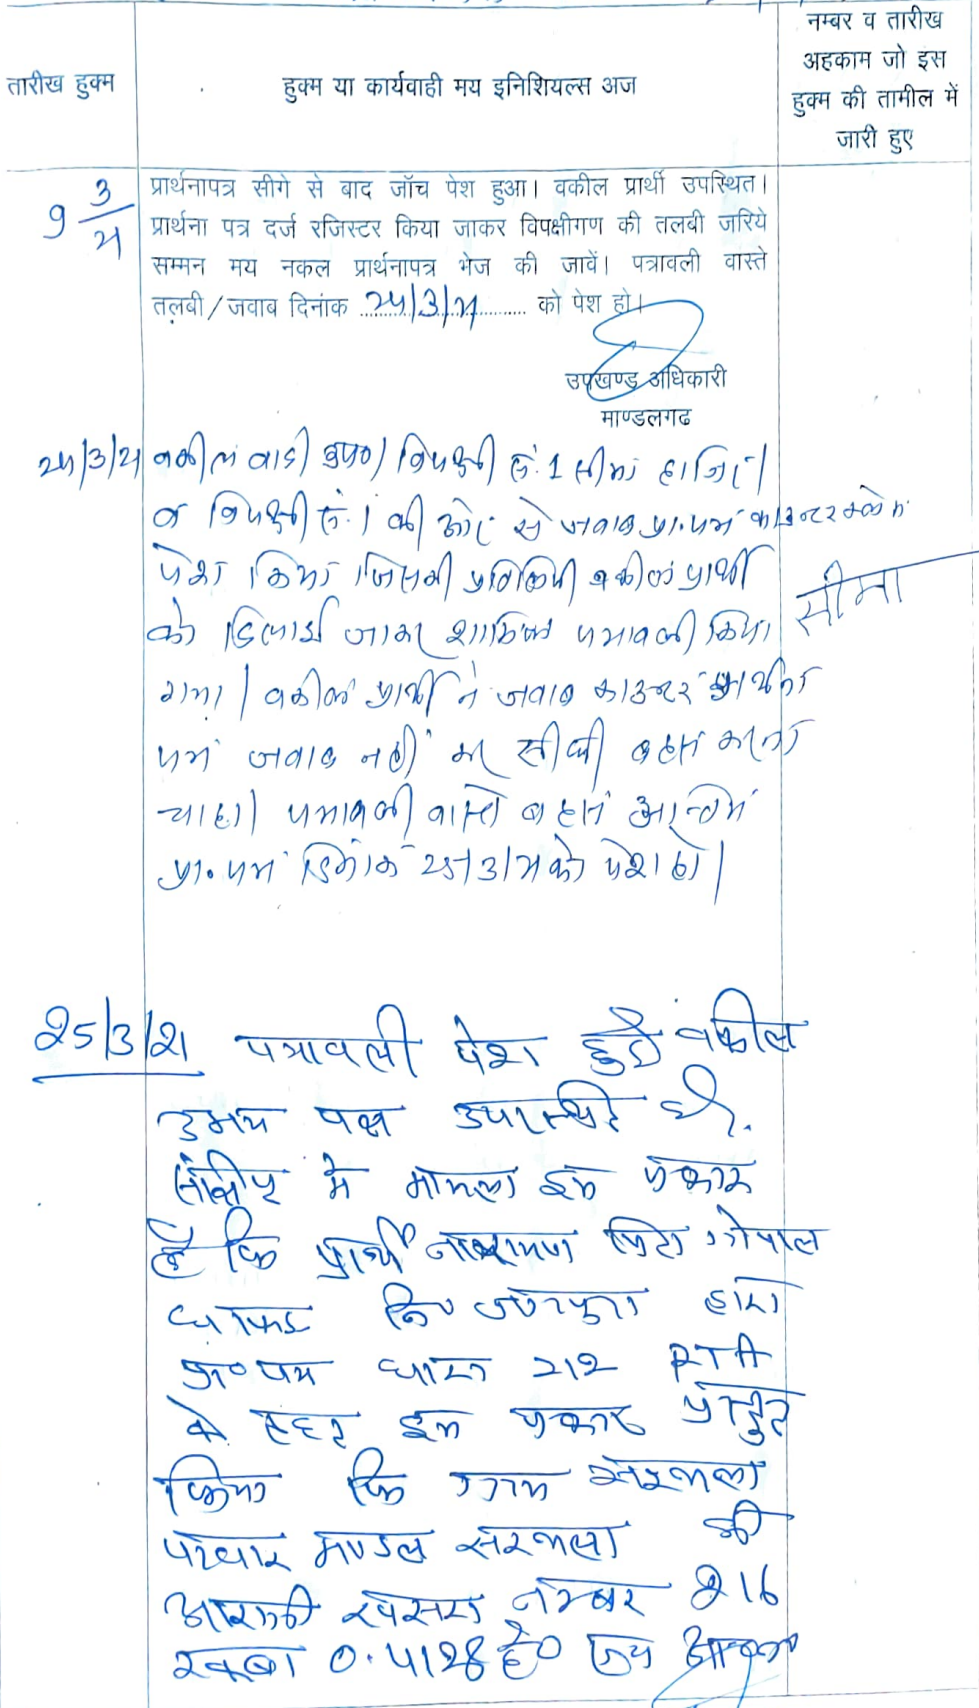 तारीख हुक्म
हुक्म या कार्यवाही मय इनिशियल्स अज
नम्बर व तारीख
अहकाम जो इस
हुक्म की तामील में
जारी हुए
9 3/21
प्रार्थनापत्र सीगे से बाद जॉच पेश हुआ। वकील प्रार्थी उपस्थित।
प्रार्थना पत्र दर्ज रजिस्टर किया जाकर विपक्षीगण की तलबी जरिये
सम्मन मय नकल प्रार्थनापत्र भेज की जावें। पत्रावली वास्ते
तलबी/जवाब दिनांक 24/3/21 को पेश हो।
उपखण्ड अधिकारी
माण्डलगढ
24/3/21 वकील वादी उप०। विपक्षी सं. 1 सीमा हाजिर।
व विपक्षी सं. 1 की ओर से जवाब प्रा.पत्र काउन्टर क्लेम
पेश किया जिसकी प्रतिलिपी वकील प्रार्थी
सीमा
को दिलाई जाकर शामिल पत्रावली किया
गया। वकील प्रार्थी ने जवाब काउन्टर प्रार्थना
पत्र जवाब नहीं कर सीधी बहस करना
चाहा। पत्रावली वास्ते बहस अन्तिम
प्रा.पत्र दिनांक 25/3/21 को पेश हो।
25/3/21 पत्रावली पेश हुई वकील
उभय पक्ष उपस्थित
संक्षिप्त मे मामला इस प्रकार
है कि प्रार्थी नारायण पिता गोपाल
धाकड नि० द्वारा
प्रा० पत्र धारा 212 RTA
के तहत इस प्रकार प्रस्तुत
किया कि ग्राम
पटवार मण्डल की
आराजी खसरा नम्बर 216
रकबा 0.4128 है०